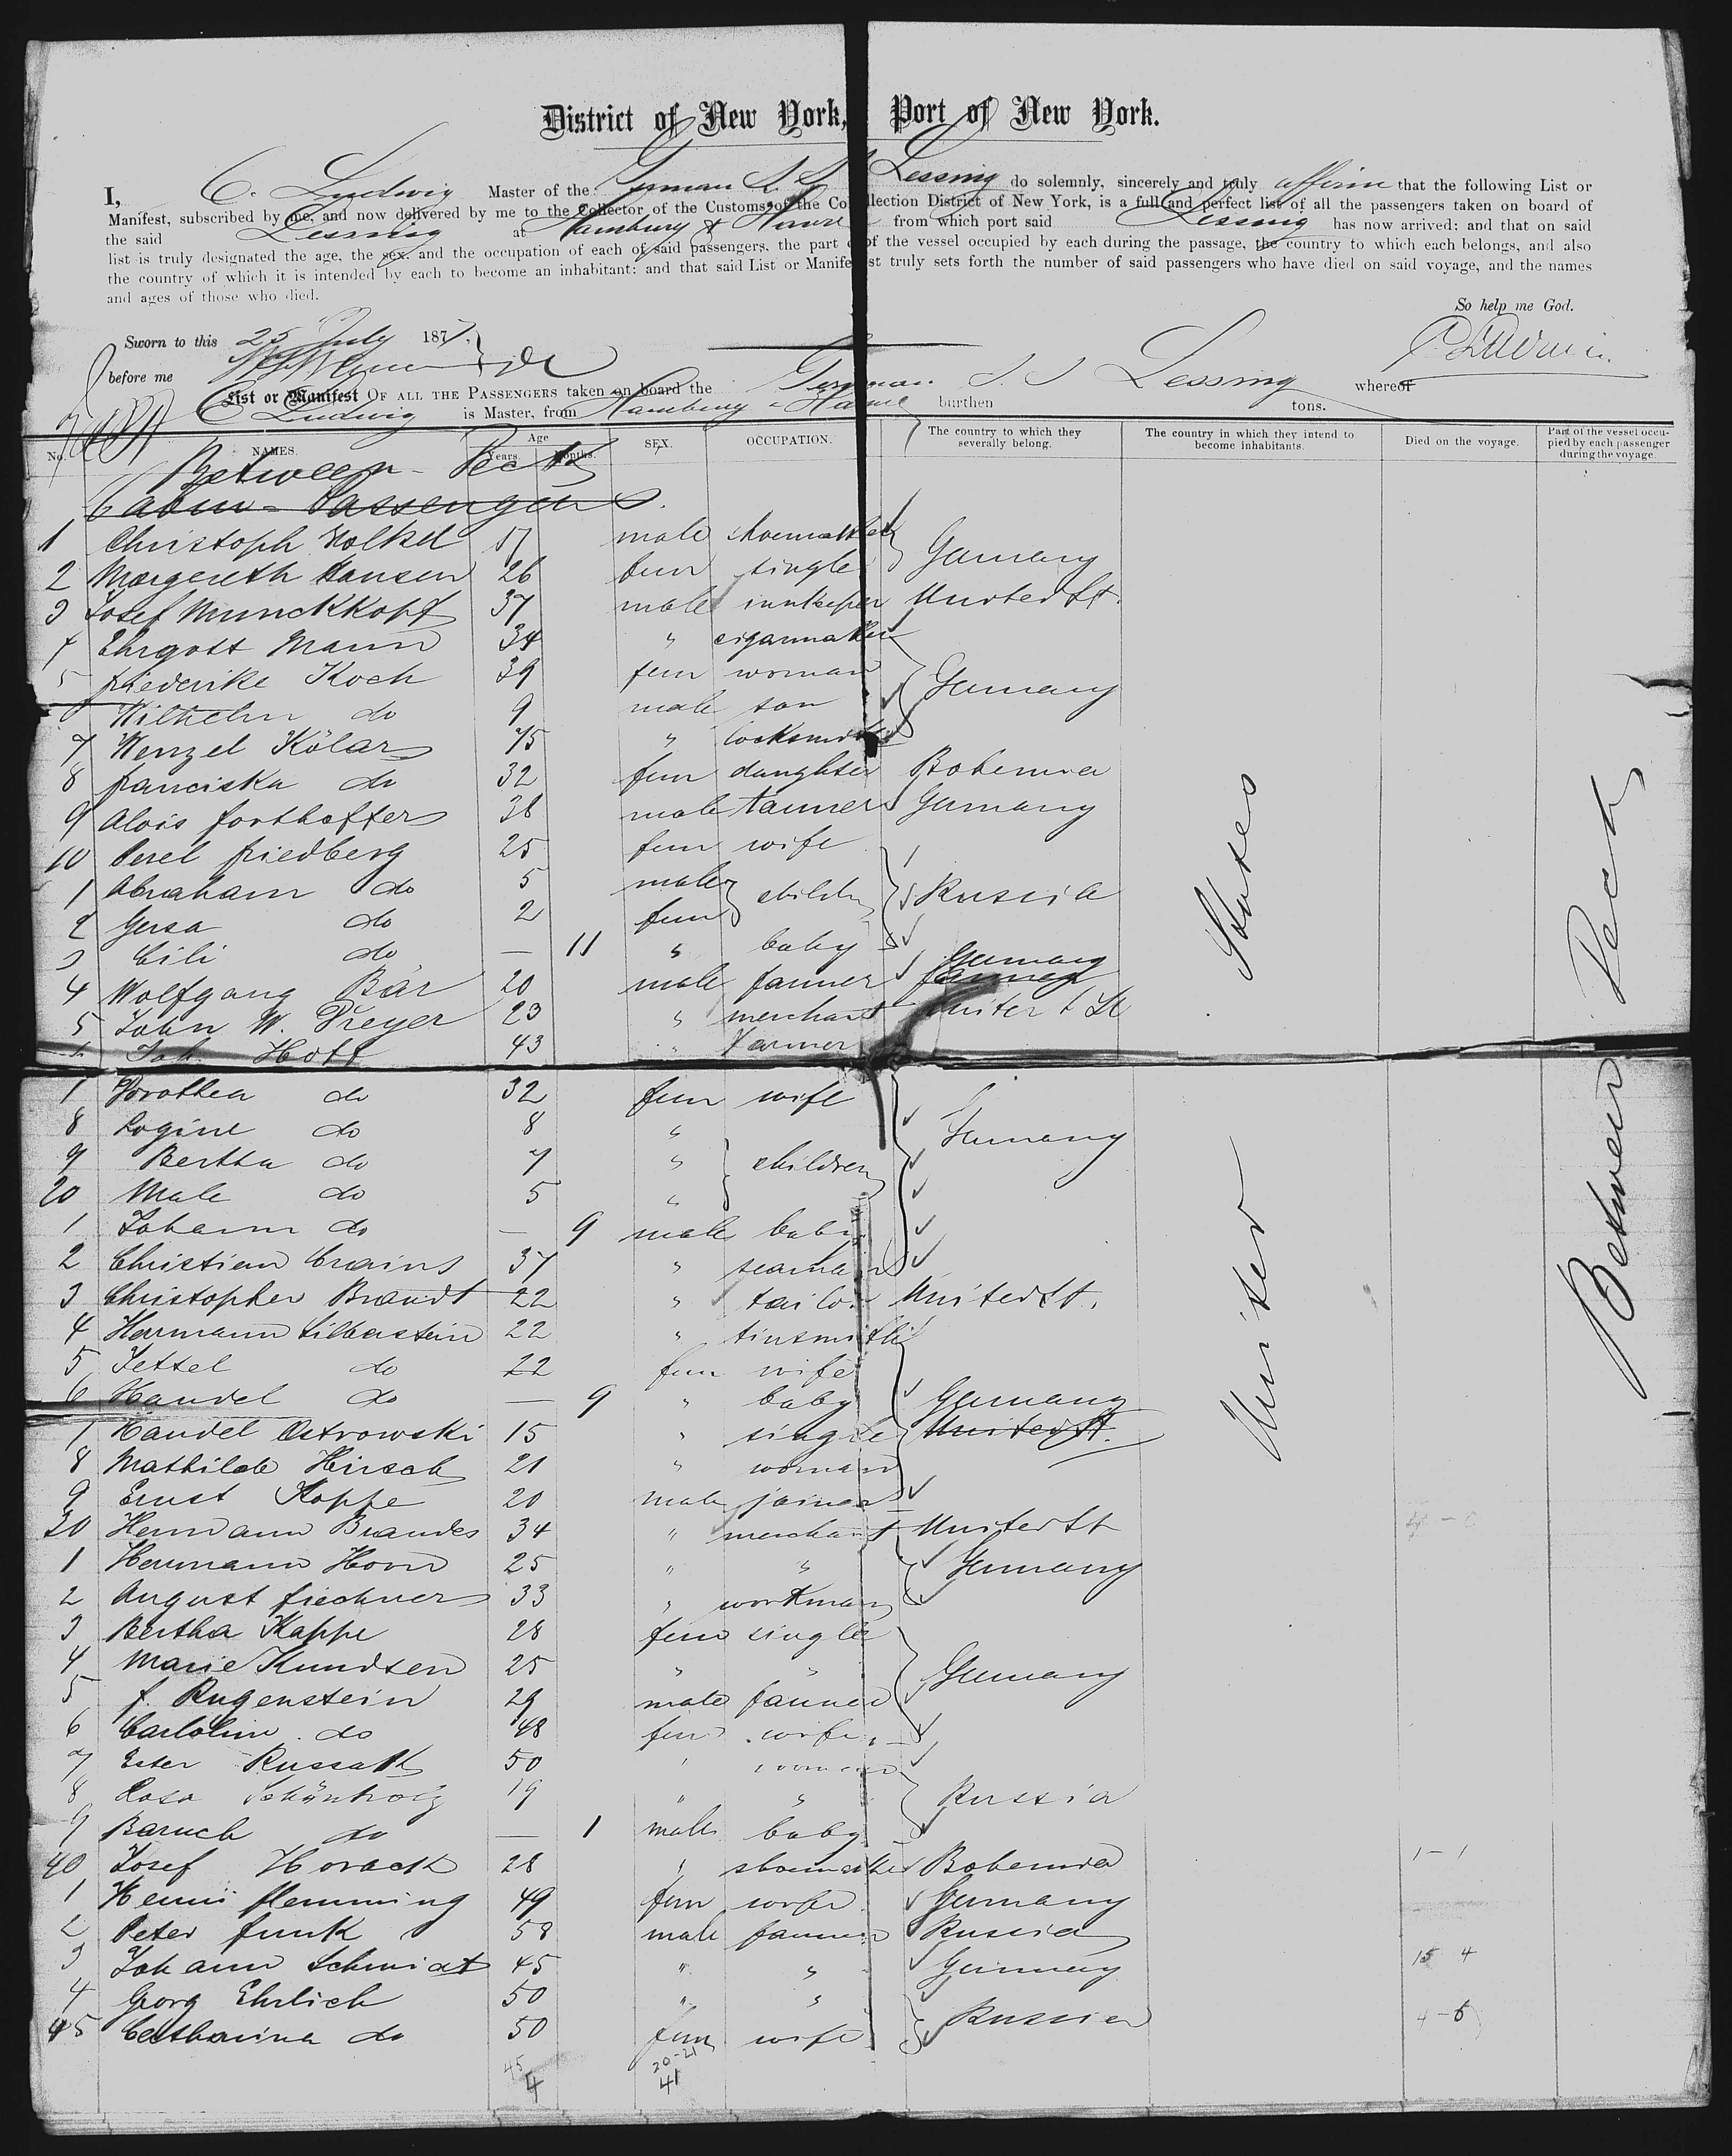 District of New York, Port of New York.
I, C. Ludwig Master of the German S. S. Lessing do solemnly, sincerely and truly affirm that the following List or
Manifest, subscribed by me, and now delivered by me to the Collector of the Customs of the Collection District of New York, is a full and perfect list of all the passengers taken on board of
the said Lessing at Hamburg & Havre from which port said Lessing has now arrived: and that on said
list is truly designated the age, the sex, and the occupation of each of said passengers, the part of the vessel occupied by each during the passage, the country to which each belongs, and also
the country of which it is intended by each to become an inhabitant: and that said List or Manifest truly sets forth the number of said passengers who have died on said voyage, and the names
and ages of those who died.
So help me God.
Sworn to this 25 July 1877.
before me
C Ludwig
List or Manifest OF ALL THE PASSENGERS taken on board the German S. S Lessing whereof
C Ludwig is Master, from Hamburg & Havre burthen tons.
No. NAMES. Age Years. Months. SEX. OCCUPATION. The country to which they severally belong. The country in which they intend to become inhabitants. Died on the voyage. Part of the vessel occupied by each passenger during the voyage.
Between-Deck
Cabin-Passengers.
1 Christoph Holkel 57 male shoemaker
2 Margereth Hansen 26 fem single Germany
3 Josef Munckkopf 37 male innkeeper United St.
4 Ehrgott Mann 34 " cigarmaker
5 Friederike Koch 39 fem woman Germany
6 Wilhelm do 9 male son
7 Wenzel Kölar 75 " locksmith
8 Franciska do 32 fem daughter Bohemia
9 Alois Forthoffer 38 male tanner Germany
10 Perel Friedberg 25 fem wife
1 Abraham do 5 male childr Russia
2 Gersa do 2 fem
3 Cili do — 11 " baby
4 Wolfgang Bär 20 male farmer Germany
5 John W. Preyer 23 " merchant United St
6 Joh. Hoff 43 " Farmer
7 Dorothea do 32 fem wife
8 Rogine do 8 " Germany
9 Bertha do 7 " children
20 Male do 5 "
1 Johann do — 9 male baby
2 Christian Crains 37 " seaman
3 Christopher Brandt 22 " tailor United St.
4 Herrmann Silberstein 22 " tinsmith
5 Jettel do 22 fem wife
6 Handel do — 9 " baby Germany
7 Handel Ostrowski 15 " single United St.
8 Mathilde Hirsch 21 " woman
9 Ernst Koppe 20 male joiner
30 Hermann Brandes 34 " merchant United St
1 Hermann Horn 25 " " Germany
2 August Fiechner 33 " workman
3 Bertha Kappe 28 fem single
4 Marie Knudsen 25 " "
5 F. Rugenstein 29 male farmer Germany
6 Carloline do 48 fem wife
7 Ester Russak 50 " woman
8 Rosa Schönholz 19 " " Russia
9 Baruch do — 1 male baby
40 Josef Horack 28 " shoemaker Bohemia 1-1
1 Henni Flemming 49 fem wife Germany
2 Peter Funk 58 male farmer Russia
3 Johann Schmidt 45 " " Germany 15 4
4 Georg Ehrlich 50 " "
45 Catharina do 50 fem wife Russia 4-6
45 4 20-21 41
United States
Between Deck